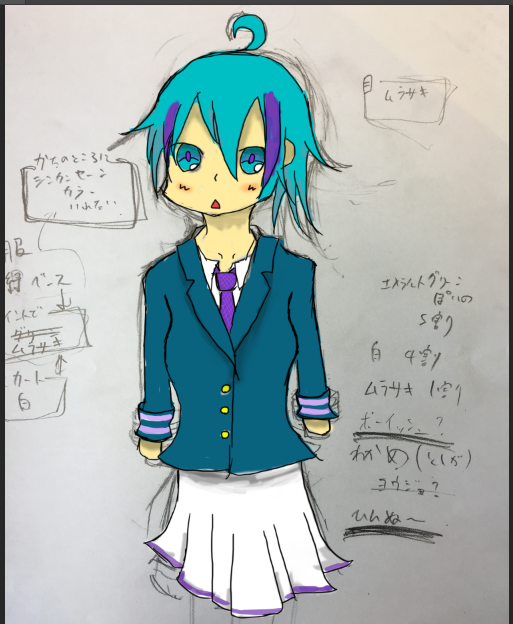 ムラサキ
かたのところに
シンカンセーン
カラー
いれたい
服
ベース
イントで
ムラサキ
カート
白
エメラルドグリーン
ぽいの
5割
白 4割
ムラサキ 1割
ボーイッシュ?
わかめ(
ヨウジョ?